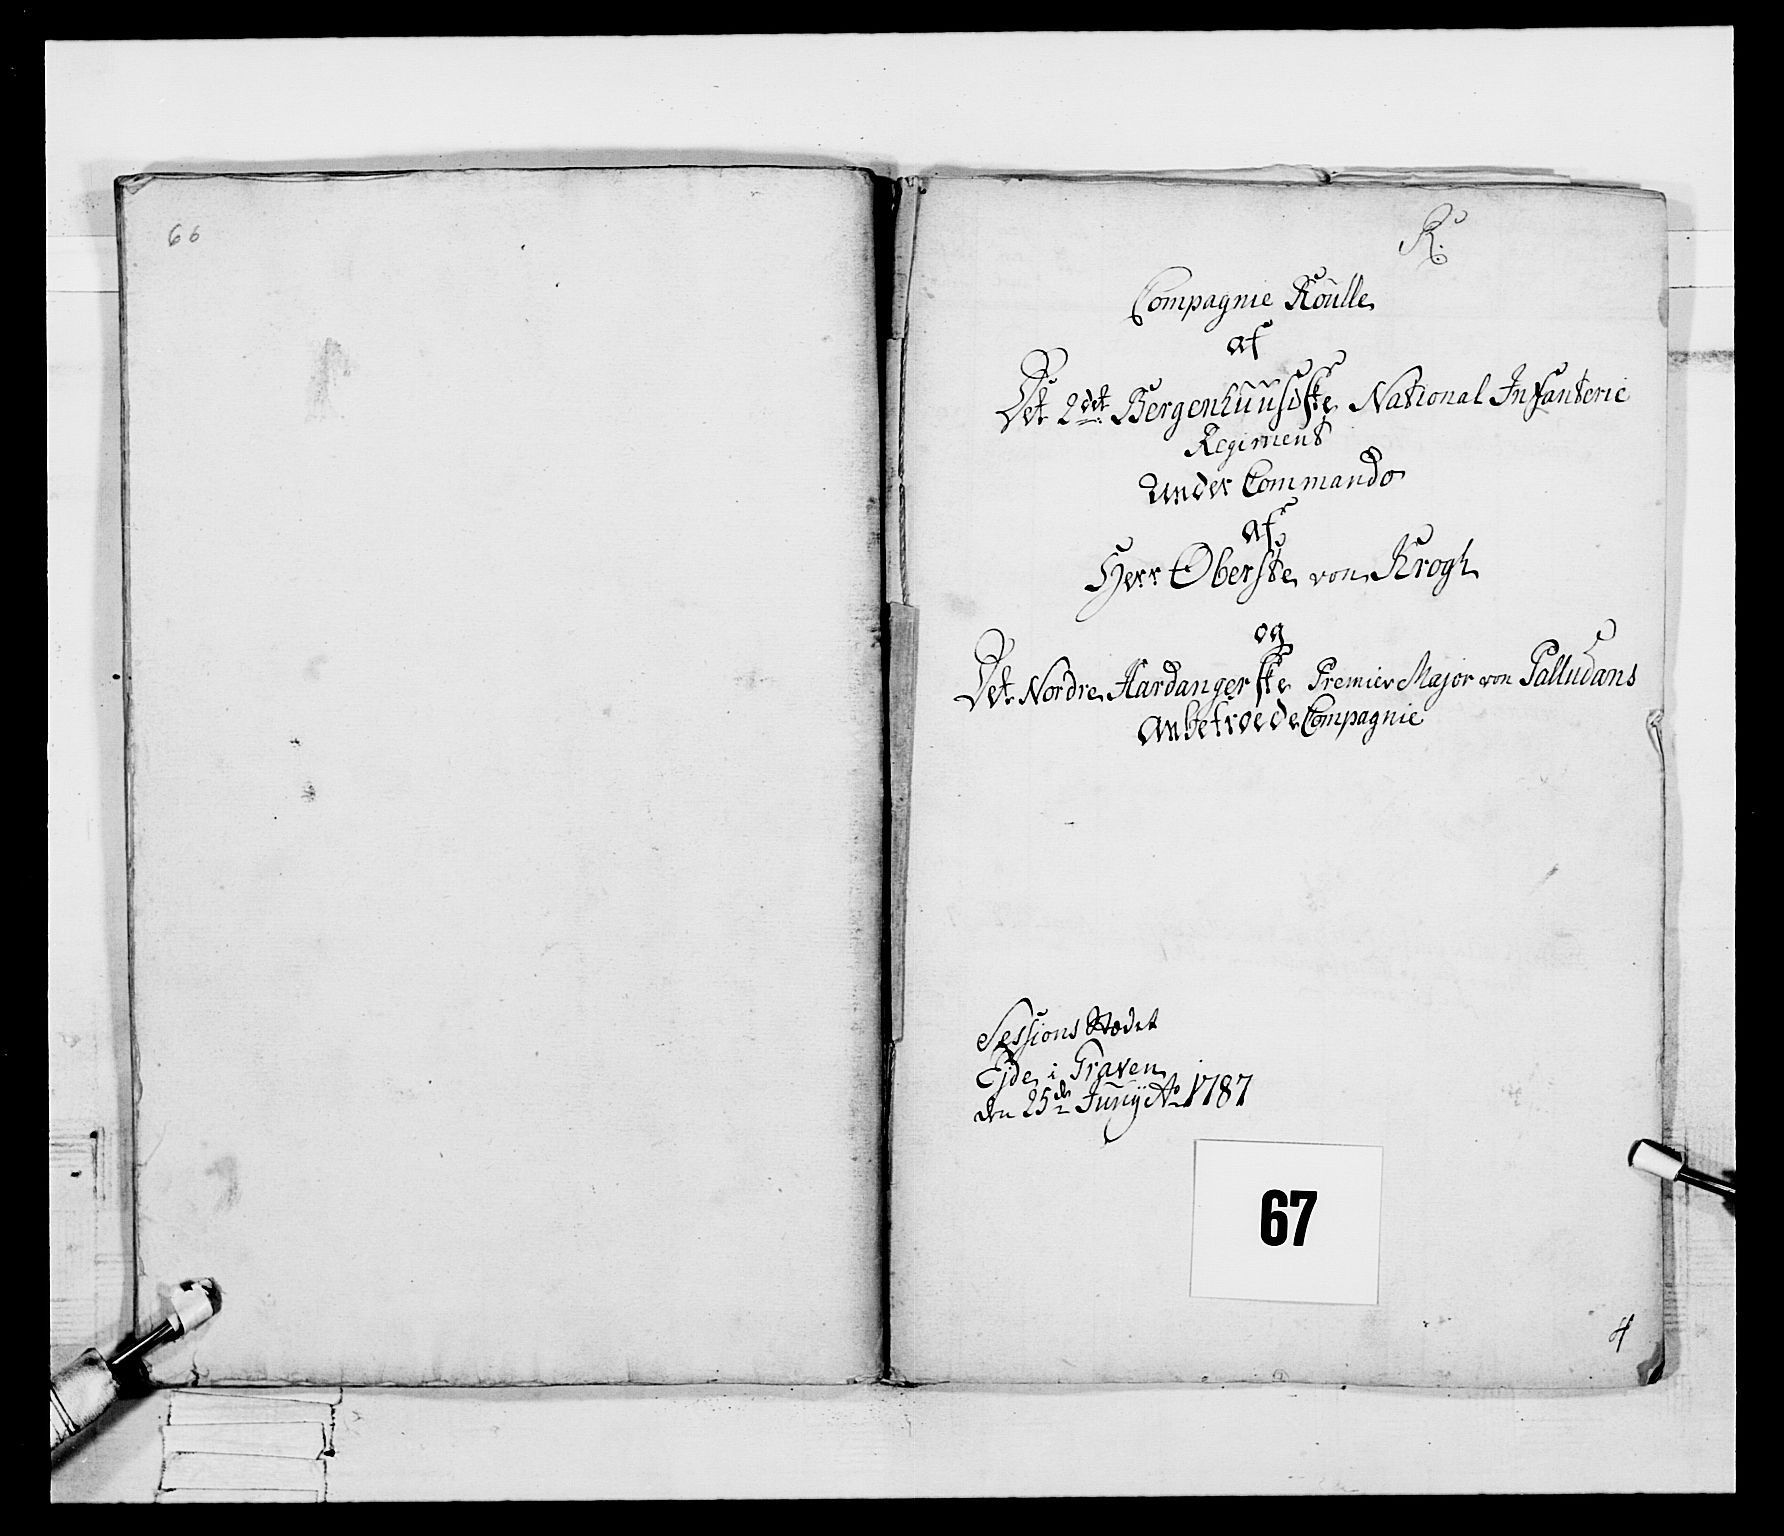 66
R.
Compagnie Roulle
af
Det 2det Bergenhuusiske National Infanterie
Regiment
Under Commando
af
Herr Oberste von Krogh
og
Det Nordre Hardangerske Premier Major von Palludans
anbetroede Compagnie
Sessions Stædet
Eide i Graven
den 25de Junÿ Ao 1787
67